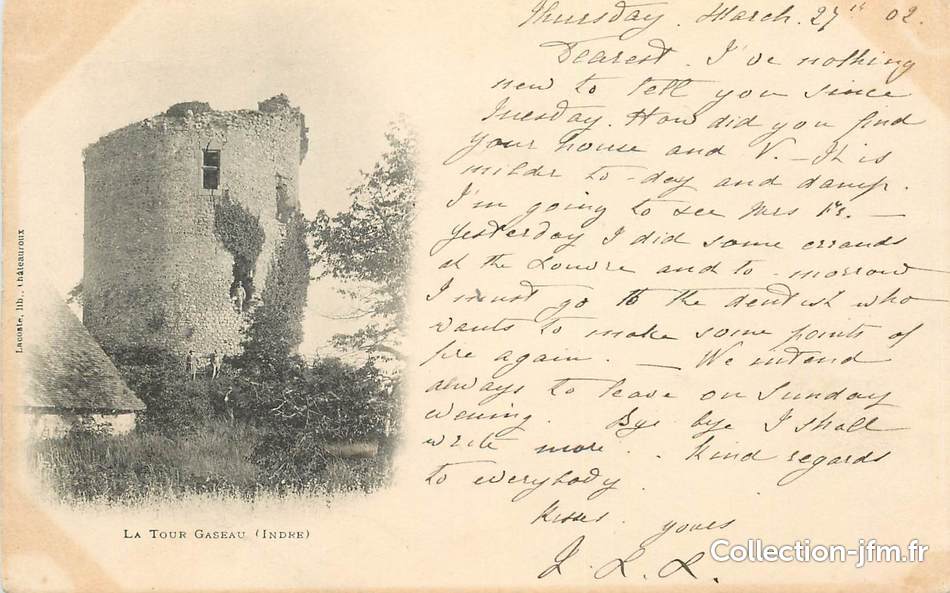 Thursday. March. 27th 02.
Dearest. I've nothing
new to tell you since
Tuesday. How did you find
your house and V. - It is
milder to-day and damp.
I'm going to see Mrs Fr. -
Yesterday I did some errands
at the Louvre and to-morrow
I must go to the dentist who
wants to make some points of
fire again. - We intend
always to leave on Sunday
evening. Bye bye I shall
write more.. Kind regards
to everybody
Kisses. yours
J. L. L.
Lacoste, lib., Châteauroux
LA TOUR GASEAU (INDRE)
Collection-jfm.fr